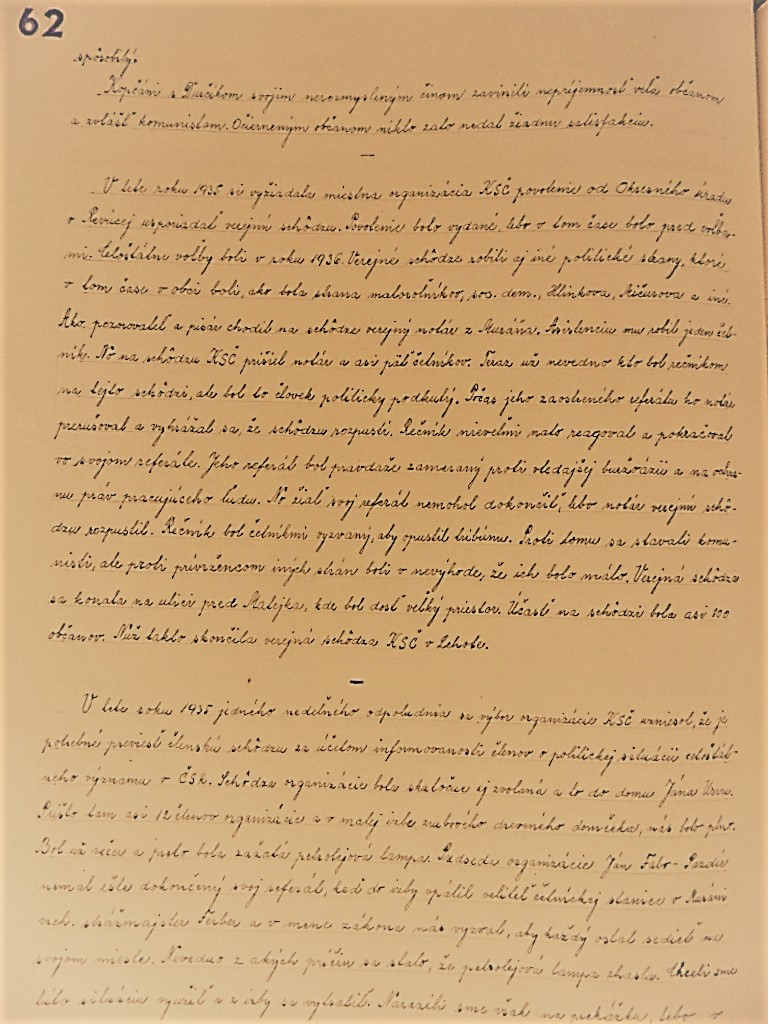 62
spôsobilý.
Kopčáni s Ďurčíkom svojím nerozmysleným činom zavinili nepríjemnosť veľa občanom
a zvlášť komunistam. Očierneným občanom nikto zato nedal žiadnu satisfakciu.
—
V lete roku 1935 si vyžiadala miestna organizácia KSČ povolenie od Okresného úradu
v Revúcej usporiadať verejnú schôdzu. Povolenie bolo vydané, lebo v tom čase bolo pred voľba-
mi. Celoštátne voľby boli v roku 1936. Verejné schôdze robili aj iné politické strany, ktoré
v tom čase v obci boli, ako bola strana maloroľníkov, soc. dem., Hlinkova, a iné.
Ako pozorovateľ a pisár chodil na schôdze verejný notár z Muráňa. Asistenciu mu robil jeden čet-
ník. No na schôdzu KSČ prišiel notár a asi päť četníkov. Teraz už nevedno kto bol rečníkom
na tejto schôdzi, ale bol to človek politicky podkutý. Počas jeho zaostreného referátu ho notár
prerušoval a vyhrážal sa, že schôdzu rozpustí. Rečník nieveľmi nato reagoval a pokračoval
vo svojom referáte. Jeho referát bol pravdaže zameraný proti vtedajšej buržoázii a na obra-
nu práv pracujúceho ľudu. No žiaľ svoj referát nemohol dokončiť, lebo notár verejnú schô-
dzu rozpustil. Rečník bol četníkmi vyzvaný, aby opustil tribúnu. Proti tomu sa stavali komu-
nisti, ale proti prívržencom iných strán boli v nevýhode, že ich bolo málo. Verejná schôdza
sa konala na ulici pred Matejka, kde bol dosť veľký priestor. Účasť na schôdzi bola asi 100
občanov. Nuž takto skončila verejná schôdza KSČ v Lehote.
—
V lete roku 1935 jedného nedeľného odpoludnia sa výbor organizácie KSČ uzniesol, že je
potrebné previesť členskú schôdzu za účelom informovanosti členov o politickej situácii celoštát-
neho významu v ČSR. Schôdza organizácie bola skutočne aj zvolaná a to do domu Jána
Prišlo tam asi 12 členov organizácie a v malej izbe zrubového dreveného domčeka, nás bolo plno.
Bol už večer a preto bola zažatá petrolejová lampa. Predseda organizácie Ján Fabo-
nemal ešte dokončený svoj referát, keď do izby vpálil veliteľ četníckej stanice v Muráni
vrch. strážmajster Ferber a v mene zákona nás vyzval, aby každý ostal sedieť na
svojom mieste. Nevedno z akých príčin sa stalo, že petrolejová lampa zhasla. Chceli sme
túto situáciu využiť a z izby sa vytratiť. Narazili sme však na prekážku, lebo v